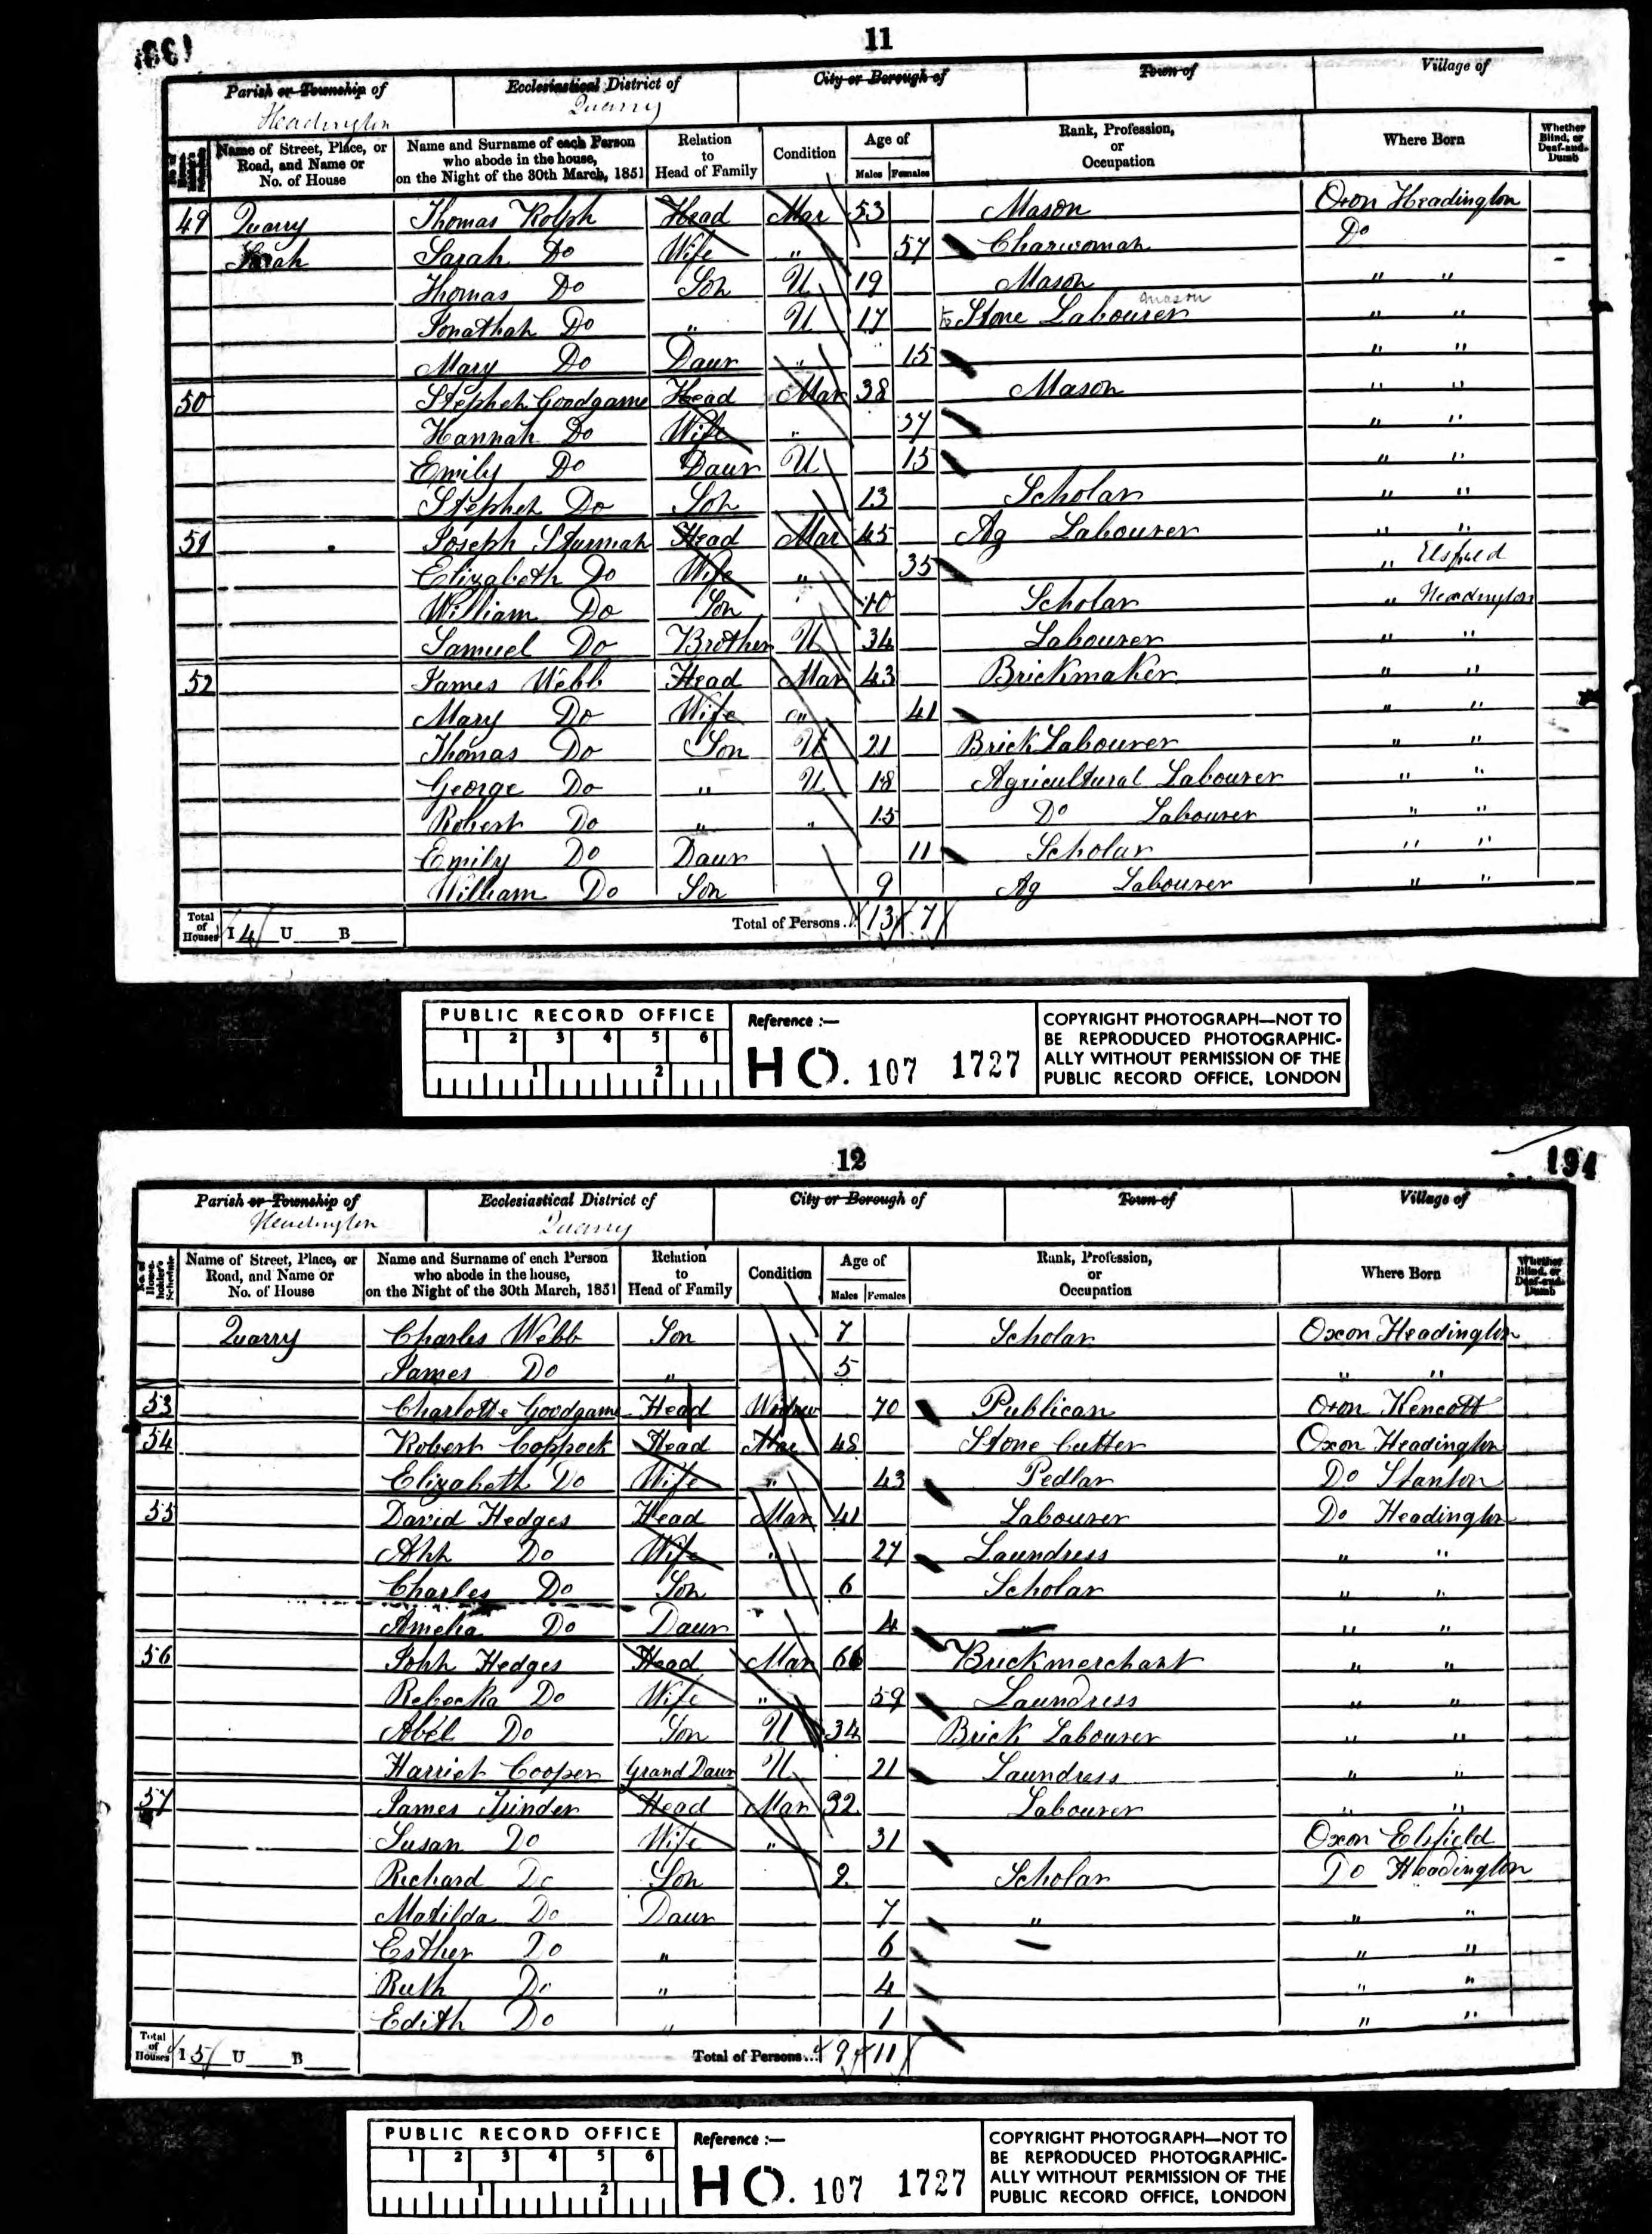 11
Parish or Township of Ecclesiastical District of City or Borough of Town of Village of
Headington Quarry
Name of Street, Place, or Road, and Name or No. of House Name and Surname of each Person who abode in the house, on the Night of the 30th March, 1851 Relation to Head of Family Condition Age of Males Females Rank, Profession, or Occupation Where Born Whether Blind, or Deaf-and-Dumb
49 Quarry Thomas Kolph Head Mar 53 Mason Oxon Headington
Sarah Sarah Do Wife " 57 Charwoman Do
Thomas Do Son U 19 Mason " "
Jonathan Do " U 17 Stone mason Labourer " "
Mary Do Daur " 15 " "
50 Stephen Goodgame Head Mar 38 Mason " "
Hannah Do Wife " 37 " "
Emily Do Daur U 15 " "
Stephen Do Son 13 Scholar " "
51 Joseph Sturman Head Mar 45 Ag Labourer " "
Elizabeth Do Wife " 35 " Elsfield
William Do Son " 10 Scholar " Headington
Samuel Do Brother U 34 Labourer " "
52 James Webb Head Mar 43 Brickmaker " "
Mary Do Wife " 41 " "
Thomas Do Son U 21 Brick Labourer " "
George Do " U 18 Agricultural Labourer " "
Robert Do " " 15 Do Labourer " "
Emily Do Daur 11 Scholar " "
William Do Son 9 Ag Labourer " "
Total of Houses I 4 U B Total of Persons 13 7
PUBLIC RECORD OFFICE
1 2 3 4 5 6
1 2
Reference :—
HO. 107 1727
COPYRIGHT PHOTOGRAPH—NOT TO
BE REPRODUCED PHOTOGRAPHIC-
ALLY WITHOUT PERMISSION OF THE
PUBLIC RECORD OFFICE, LONDON
12
194
Parish or Township of Ecclesiastical District of City or Borough of Town of Village of
Headington Quarry
No. of Householder's Schedule Name of Street, Place, or Road, and Name or No. of House Name and Surname of each Person who abode in the house, on the Night of the 30th March, 1851 Relation to Head of Family Condition Age of Males Females Rank, Profession, or Occupation Where Born Whether Blind, or Deaf-and-Dumb
Quarry Charles Webb Son 7 Scholar Oxon Headington
James Do " 5 " "
53 Charlotte Goodgame Head Widow 70 Publican Oxon Kencott
54 Robert Coppock Head Mar 48 Stone Cutter Oxon Headington
Elizabeth Do Wife " 43 Pedlar Do Stanton
55 David Hedges Head Mar 41 Labourer Do Headington
Ann Do Wife " 27 Laundress " "
Charles Do Son 6 Scholar " "
Amelia Do Daur 4 — " "
56 John Hedges Head Mar 66 Brickmerchant " "
Rebecka Do Wife " 59 Laundress " "
Abel Do Son U 34 Brick Labourer " "
Harriet Cooper Grand Daur U 21 Laundress " "
57 James Trinder Head Mar 32 Labourer " "
Susan Do Wife " 31 Oxon Elsfield
Richard Do Son 9 Scholar Do Headington
Matilda Do Daur 7 " " "
Esther Do " 6 — " "
Ruth Do " 4 " "
Edith Do " 1 " "
Total of Houses I 5 U B Total of Persons 9 11
PUBLIC RECORD OFFICE
1 2 3 4 5 6
1 2
Reference :—
HO. 107 1727
COPYRIGHT PHOTOGRAPH—NOT TO
BE REPRODUCED PHOTOGRAPHIC-
ALLY WITHOUT PERMISSION OF THE
PUBLIC RECORD OFFICE, LONDON